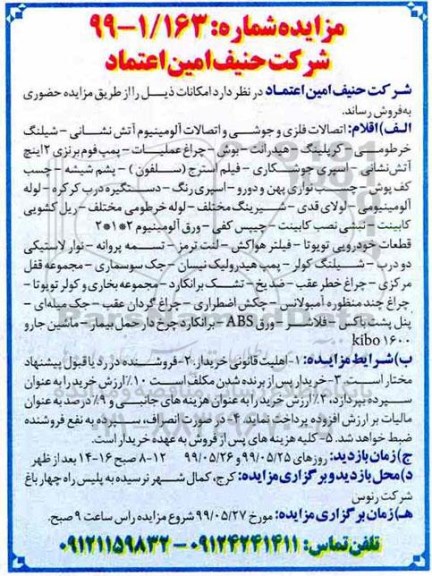 مزایده شماره: ۱/۱۶۳-۹۹
شرکت حنیف امین اعتماد
شرکت حنیف امین اعتماد در نظر دارد امکانات ذیل را از طریق مزایده حضوری
به فروش رساند.
الف) اقلام: اتصالات فلزی و جوشی و اتصالات آلومینیوم آتش نشانی - شیلنگ
خرطومی - کوپلینگ - هیدرانت - بوش - چراغ عملیات - پمپ فوم برنزی ۲ اینچ
آتش نشانی - اسپری جوشکاری - فیلم استرچ (سلفون) - پشم شیشه - چسب
کف پوش - چسب نواری پهن و دورو - اسپری رنگ - دستگیره درب کرکره - لوله
آلومینیومی - لولای قدی - شیرینگ مختلف - لوله خرطومی مختلف - ریل کشویی
کابینت - نبشی نصب کابینت - چیپس کفی - ورق آلومینیوم ۲*۱*۲
قطعات خودرویی تویوتا - فیلتر هواکش - لنت ترمز - تسمه پروانه - نوار لاستیکی
دو درب - شیلنگ کولر - پمپ هیدرولیک نیسان - جک سوسماری - مجموعه قفل
مرکزی - چراغ خطر عقب - ضدیخ - تشک برانکارد - مجموعه بخاری و کولر تویوتا -
چراغ چند منظوره آمبولانس - چکش اضطراری - چراغ گردان عقب - جک میله‌ای -
پنل پشت باکس - فلاشر - ورق ABS - برانکارد چرخ دار حمل بیمار - ماشین جارو
kibo ۱۶۰۰
ب) شرایط مزایده: ۱- اهلیت قانونی خریدار. ۲- فروشنده در رد یا قبول پیشنهاد
مختار است. ۳- خریدار پس از برنده شدن مکلف است ۱۰٪ ارزش خرید را به عنوان
سپرده بپردازد، ۲٪ ارزش خرید را به عنوان هزینه های جانبی و ۹٪ درصد به عنوان
مالیات بر ارزش افزوده پرداخت نماید. ۴- در صورت انصراف، سپرده به نفع فروشنده
ضبط خواهد شد. ۵- کلیه هزینه های پس از فروش به عهده خریدار است.
ج) زمان بازدید: روزهای ۹۹/۰۵/۲۵ و ۹۹/۰۵/۲۶ ۸-۱۲ صبح ۱۶-۱۴ بعد از ظهر
د) محل بازدید و برگزاری مزایده: کرج، کمال شهر نرسیده به پلیس راه چهارباغ
شرکت رنوس
هـ) زمان برگزاری مزایده: مورخ ۹۹/۰۵/۲۷ شروع مزایده راس ساعت ۹ صبح.
تلفن تماس: ۰۹۱۲۴۲۴۱۴۱۱ - ۰۹۱۲۱۱۵۹۸۳۲